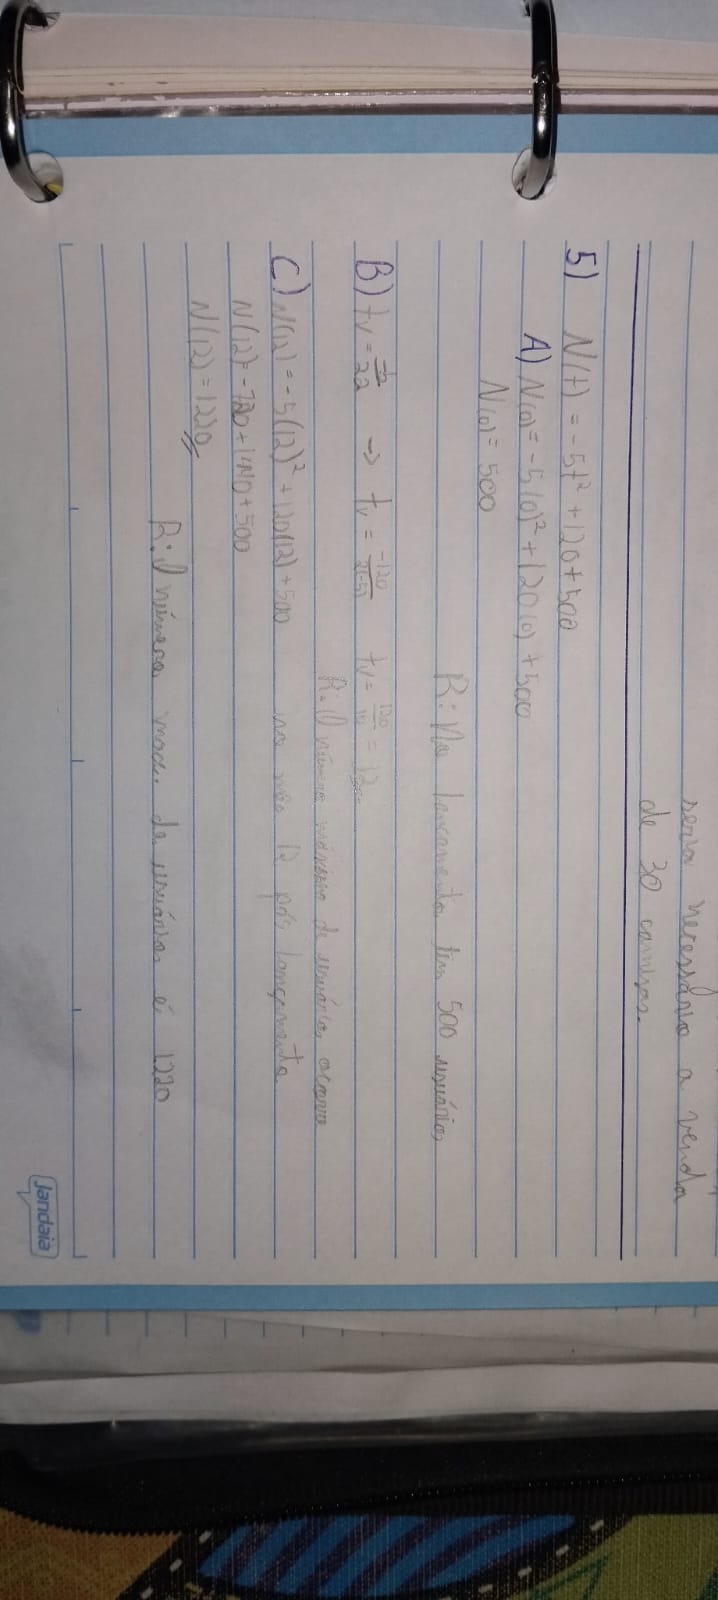 seria necessário a venda
de 30 camisas.
5) N(t) = -5t² + 120 + 500
A) N(0) = -5(0)² + 120(0) + 500
N(0) = 500
R: No lançamento tem 500 usuários
B) tv = -b/2a → tv = -120/2(-5) tv = 120/10 = 12
R: O número máximo de usuários ocorre
no mês 12 pós lançamento
C) N(12) = -5(12)² + 120(12) + 500
N(12) = -720 + 1440 + 500
N(12) = 1220
R: O número max. de usuários é 1220
Jandaia